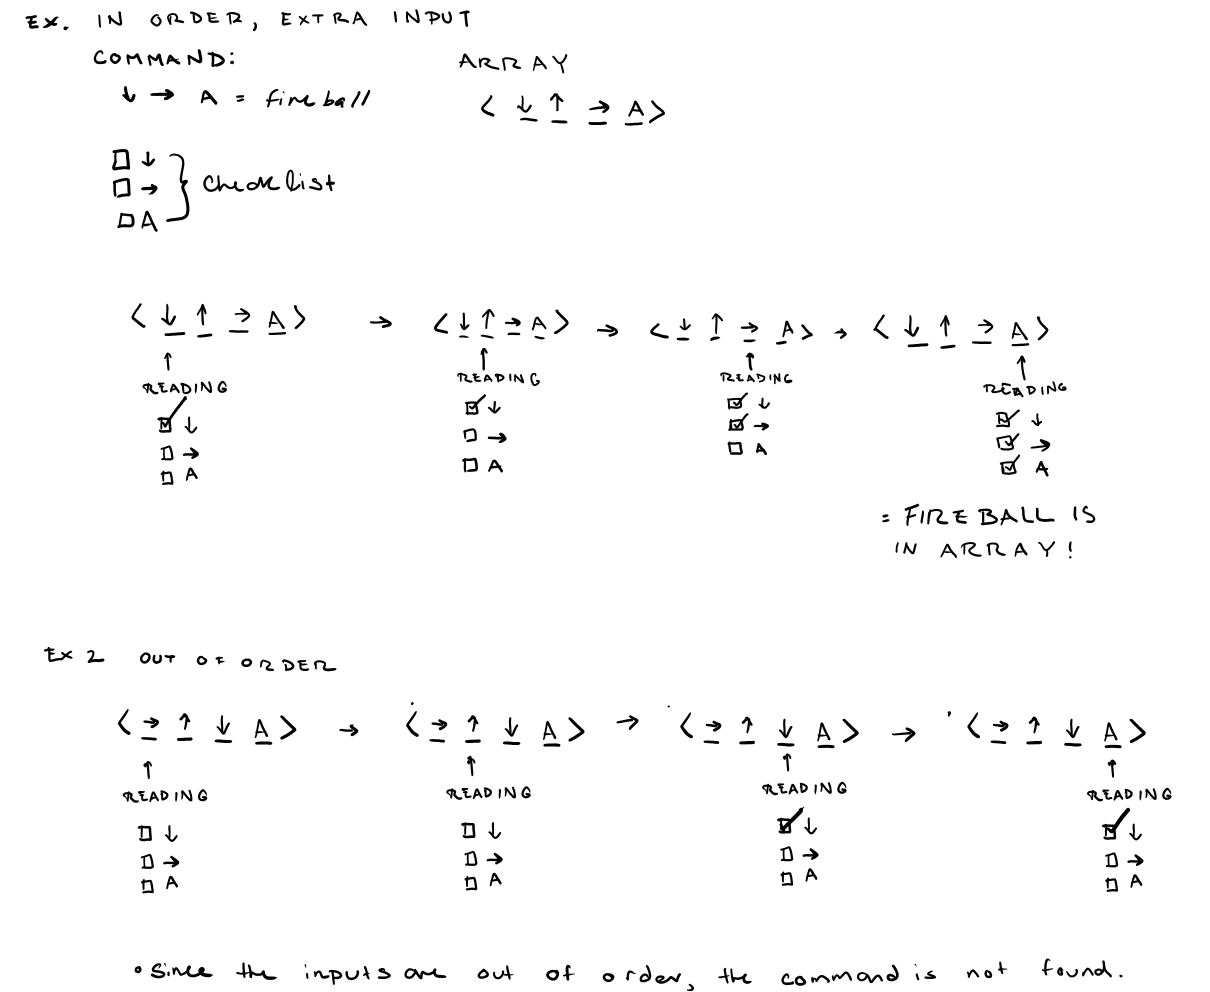 EX. IN ORDER, EXTRA INPUT
COMMAND:
↓ → A = fireball
ARRAY
< ↓ ↑ → A >
☐ ↓
☐ →
☐ A
checklist
< ↓ ↑ → A > → < ↓ ↑ → A > → < ↓ ↑ → A > → < ↓ ↑ → A >
↑ ↑ ↑ ↑
READING READING READING READING
☑ ↓ ☑ ↓ ☑ ↓ ☑ ↓
☐ → ☐ → ☑ → ☑ →
☐ A ☐ A ☐ A ☑ A
= FIREBALL IS
IN ARRAY!
EX 2 OUT OF ORDER
< → ↑ ↓ A > → < → ↑ ↓ A > → < → ↑ ↓ A > → < → ↑ ↓ A >
↑ ↑ ↑ ↑
READING READING READING READING
☐ ↓ ☐ ↓ ☑ ↓ ☑ ↓
☐ → ☐ → ☐ → ☐ →
☐ A ☐ A ☐ A ☐ A
• Since the inputs are out of order, the command is not found.